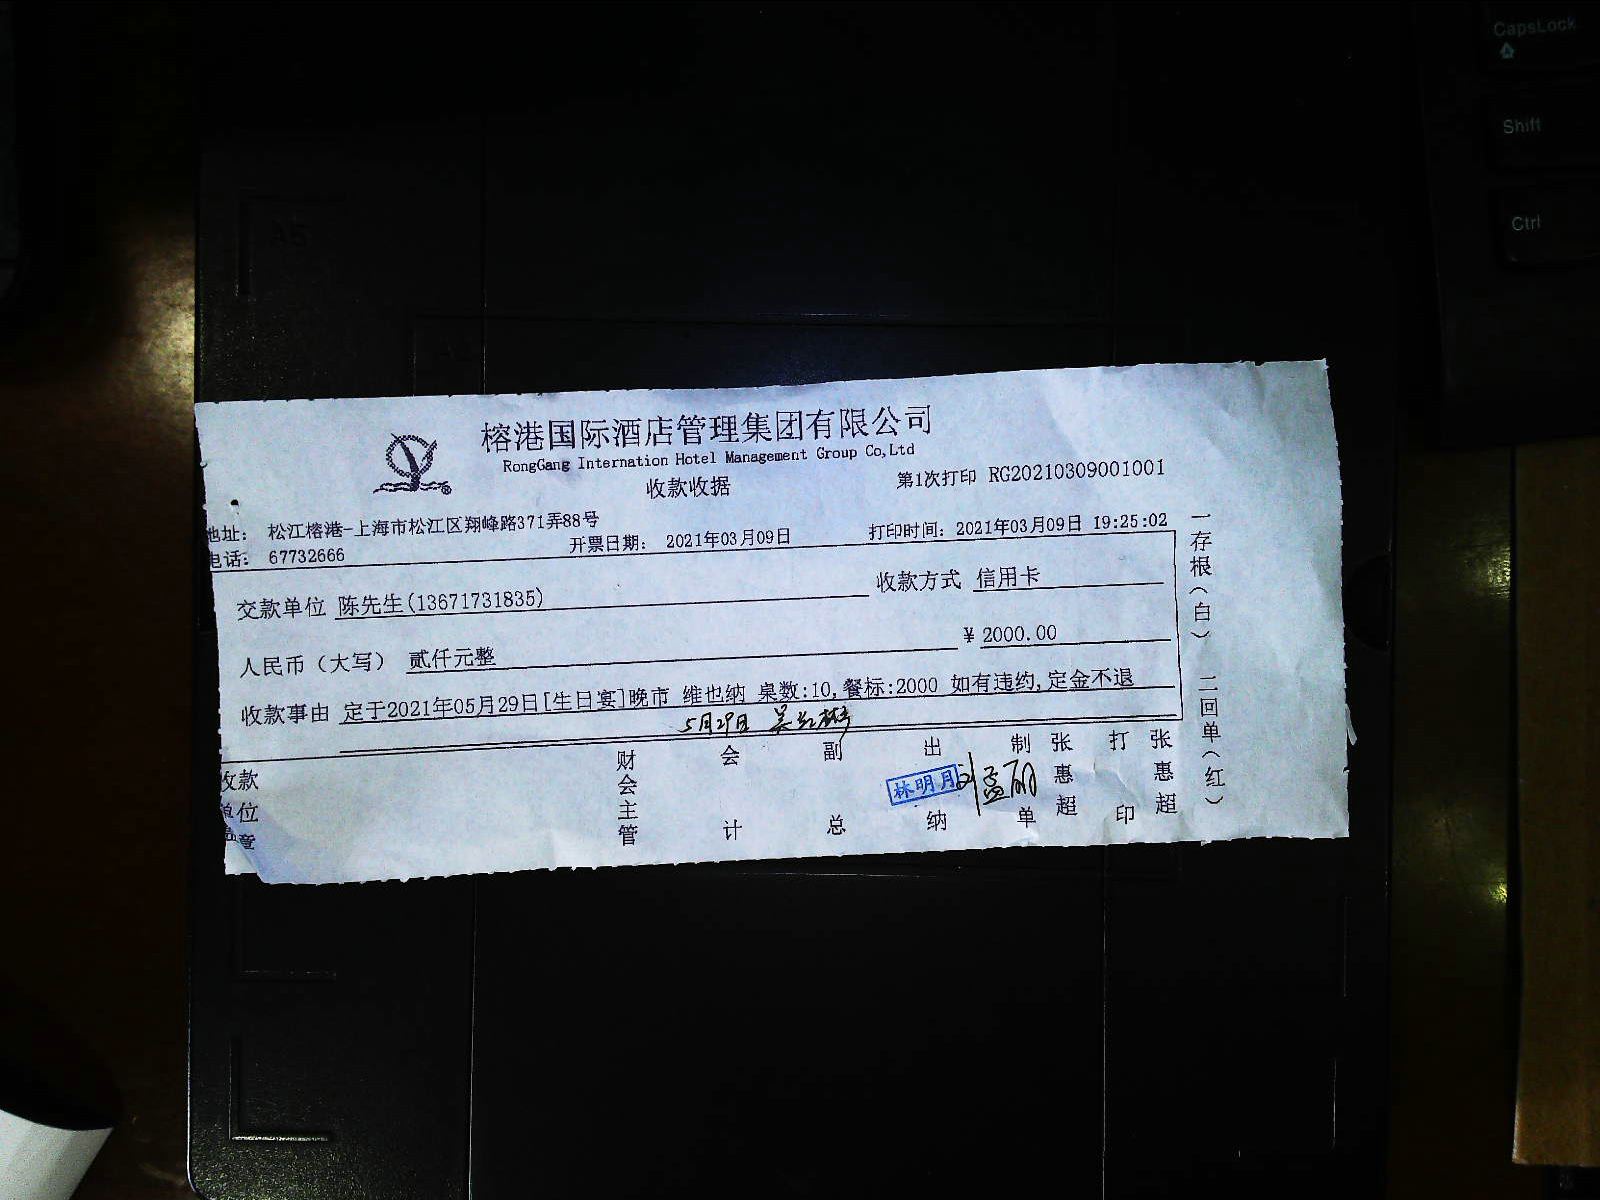 CapsLock
Shift
Ctrl
A5
榕港国际酒店管理集团有限公司
RongGang Internation Hotel Management Group Co,Ltd
收款收据
第1次打印 RG20210309001001
地址： 松江榕港-上海市松江区翔峰路371弄88号
电话： 67732666
开票日期： 2021年03月09日
打印时间： 2021年03月09日 19:25:02
交款单位 陈先生(13671731835)
收款方式 信用卡
人民币（大写） 贰仟元整
¥ 2000.00
收款事由 定于2021年05月29日[生日宴]晚市 维也纳 桌数:10,餐标:2000 如有违约,定金不退
5月29日
收款单位盖章
财会主管
会计
副总
出纳
林明月
制单
张惠超
打印
张惠超
一存根（白） 二回单（红）